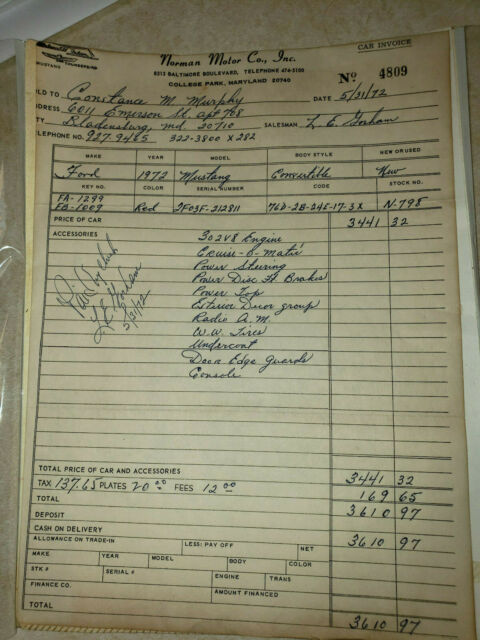 CAR INVOICE
Norman Motor Co., Inc.
8313 BALTIMORE BOULEVARD, TELEPHONE 474-5100
COLLEGE PARK, MARYLAND 20740
No. 4809
MUSTANG THUNDERBIRD
LD TO Constance M. Murphy DATE 5/31/72
DRESS 6011 Emerson St. apt 708
TY Bladensburg, Md. 20710 SALESMAN L. E. Gorham
ELEPHONE NO. 927-9465 322-3800 X 282
MAKE YEAR MODEL BODY STYLE NEW OR USED
Ford 1972 Mustang Convertible New
KEY NO. COLOR SERIAL NUMBER CODE STOCK NO.
FA-1299
FB-1009 Red 2F03F-212811 76D-2B-24E17-3X N-798
PRICE OF CAR 3441 32
ACCESSORIES 302V8 Engine
Cruise-O-Matic
Power Steering
Power Disc Ft Brakes
Power Top
Exterior Decor group
Radio A.M.
W.W. Tires
Undercoat
Door Edge guards
Console
Paid
L E Gorham
5/31/72
TOTAL PRICE OF CAR AND ACCESSORIES 3441 32
TAX 137.65 PLATES 20 00 FEES 12 00 169 65
TOTAL 3610 97
DEPOSIT
CASH ON DELIVERY 3610 97
ALLOWANCE ON TRADE-IN LESS: PAY OFF NET
MAKE YEAR MODEL BODY COLOR
STK # SERIAL # ENGINE TRANS
FINANCE CO. AMOUNT FINANCED
TOTAL 3610 97